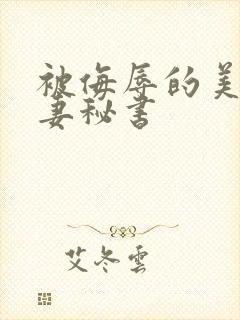 被侮辱的美
妻秘书
艾冬雲